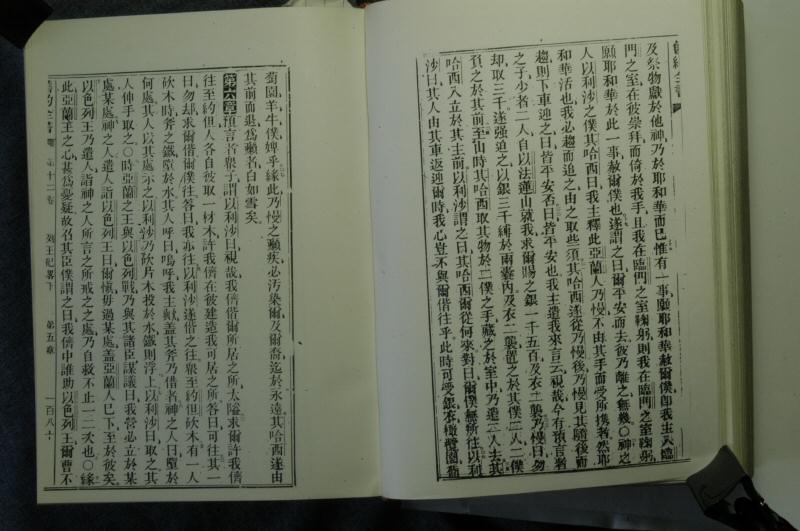 及祭物獻於他神乃於耶和華而已惟有一事願耶和華赦爾僕卽我主入臨
門之室在彼崇拜而倚於我手且我在臨門之室鞠躬則我在臨門之室鞠躬
願耶和華於此一事赦爾僕也遂謂之曰爾平安而去彼乃離之無幾〇神之
人以利沙之僕其哈西曰我主釋此亞蘭人乃慢不由其手而受所携者然耶
和華活也我必趨而追之由之取些須其哈西遂從乃慢後乃慢見其隨後而
趨則下車迎之曰皆平安否曰皆平安也我主遣我來言云視哉今有預言者
之子少者二人自以法蓮山就我求爾賜之銀一千五百及衣二襲乃慢曰勿
却取三千遂强迫之以銀三千縛於兩囊內及衣二襲置之於其僕二人二僕
負之於其前至山時其哈西取其物於二僕之手藏之於室中乃遣二人去其
哈西入立於其主前以利沙謂之曰其哈西爾從何來對曰爾僕無所往以利
沙曰其人由其車返迎爾時我心豈不與爾偕往乎此時可受銀衣橄欖園葡
萄園羊牛僕婢乎緣此乃慢之癩疾必汚染爾及爾裔迄於永遠其哈西遂由
其前而退爲癩者白如雪矣
第六章預言者衆子謂以利沙曰視哉我儕偕爾所居之所太隘求爾許我儕
往至約但人各自彼取一材木許我儕在彼建造我可居之所答曰可往其一
曰勿却求爾偕爾僕往答曰我亦往以利沙遂偕之往衆至約但砍木有一人
砍木時斧之鐵墮於水其人呼曰嗚呼我主歟盖其斧乃借者神之人曰墮於
何處其人以其處示之以利沙乃砍片木投於水鐵則浮上以利沙曰取之其
人伸手取之〇時亞蘭之王與以色列戰乃與其諸臣謀議曰我營必立於某
處某處神之人遣人詣以色列王曰爾愼毋過某處盖亞蘭人已下至於彼矣
以色列王乃遣人詣神之人所言之所戒之之處乃自救不止一二次也〇緣
此亞蘭王之心甚爲憂疑故召其臣僕謂之曰我儕中誰助以色列王爾曹不
第十二卷 列王紀畧下 第五章 一百八十